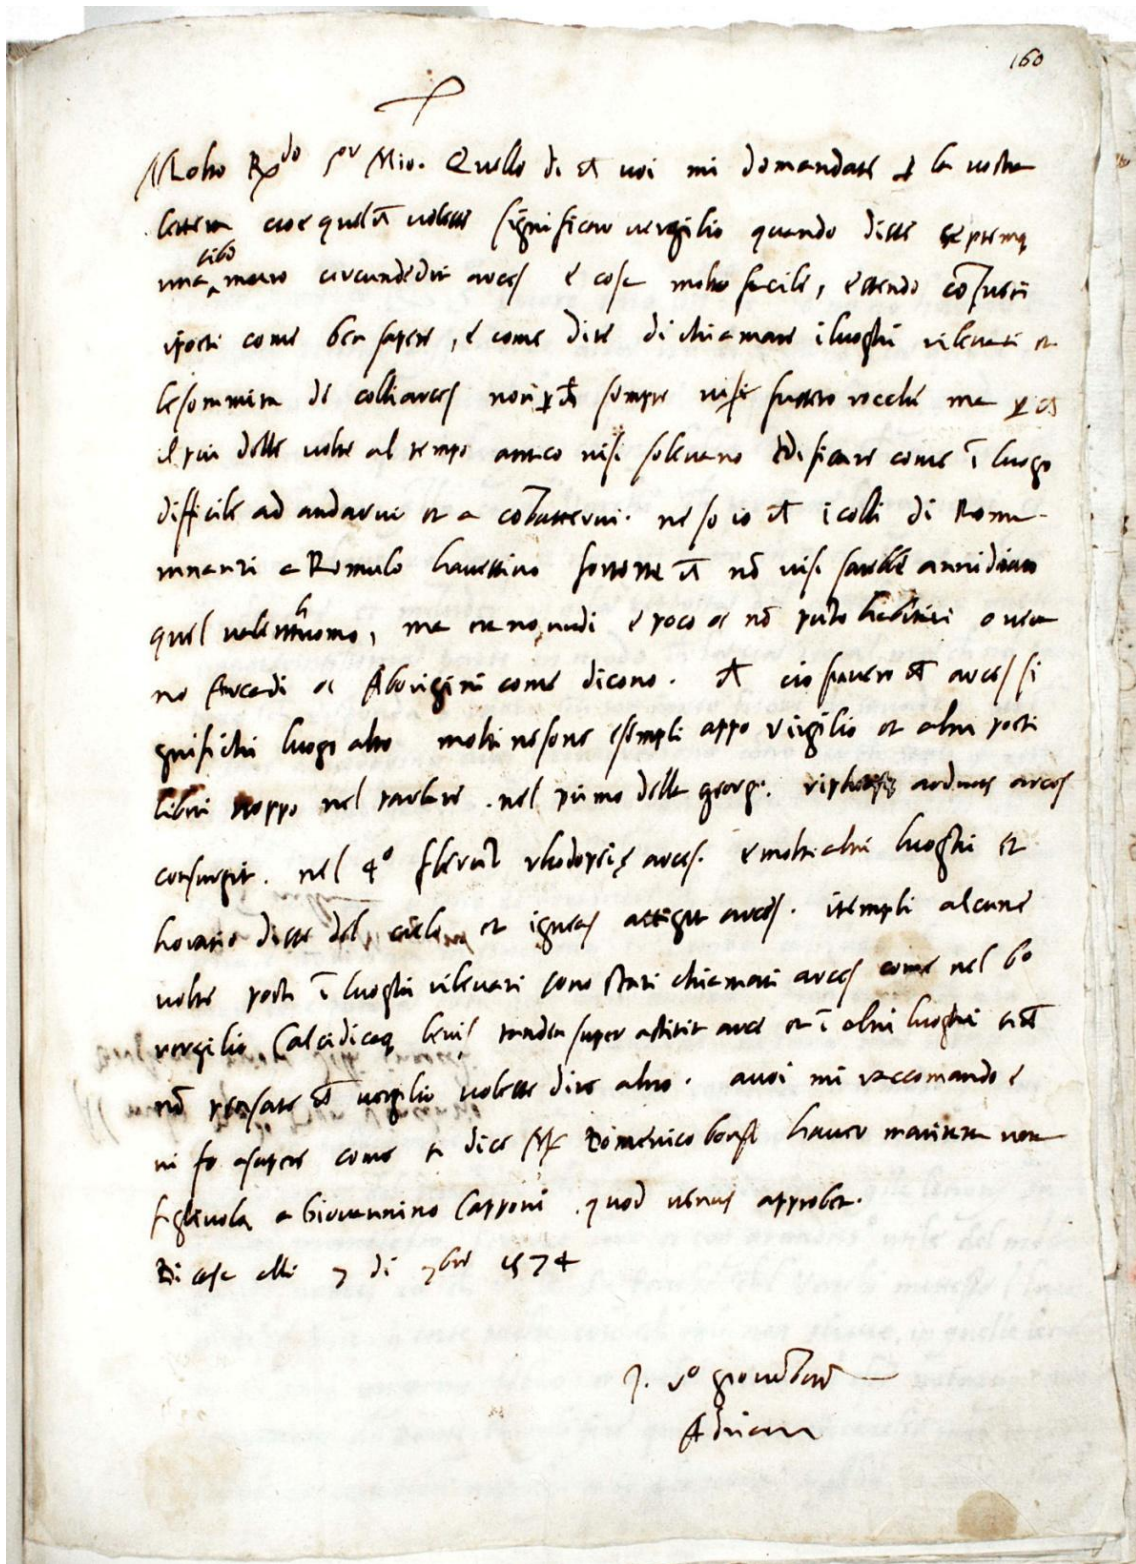 160
Molto R.do S.or Mio. Quello di ch voi mi domandate p la vostra
lettera cioe quel ch volesse significar vergilio quando disse septemq
una sibi muro circundedit arces e cosa molto facile, essendo cõsueti
i poeti come ben sapete, e come dite di chiamare i luoghi rilevati et
le sommita de colli arces non p ch sempre vi fussero rocche ma p ch
il piu delle volte al tempo antico visi solevano edificare come ĩ luogo
difficile ad andarvi et a cõbattervi. ne so io ch i colli di Roma
innanzi a Romulo havessino fortezze ch nõ visi sarebbe annidiato
quel valenthuomo, ma erano nudi e poco o nõ punto habitati o vera
no Arcadi o Aborigini come dicono. ch cio sia vero ch arces si
gnifichi luogo alto molti ne sono esempli appo Virgilio et altri poeti
libri troppo nel parlare. nel primo della georg. ripheasq arduus arces
consurgit. nel 4º flerũt rhodopeiȩ arces. e molti altri luoghi et
horatio disse del cielo et igneas attigit arces. i templi alcune
volte posti ĩ luoghi rilevati sono stati chiamati arces come nel 6º
vergilio Calcidicaq levis tandem super astitit arce et ĩ altri luoghi sich
nõ pensate ch vergilio volesse dire altro. a voi mi raccomando e
vi fo a sapere come si dice M. Domenico bonsi haver maritata una
figlivola a Giovannino Capponi. quod venus approbet.
Di casa alli 7 di 7bre 1574
J. Vº giovãbatt
Adriani